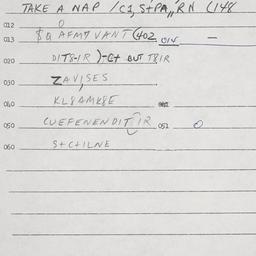 TAKE A NAP /C1, S+PA,,RN (148
012 O
013 $Q AFMT VANT (402 014 —
020 DITS-IR )-C+ BUT T8IR
030 ZAVISES
040 KL8AMK8E
050 CUEFENENDIT IR 051 O
060 S+C+ILNE